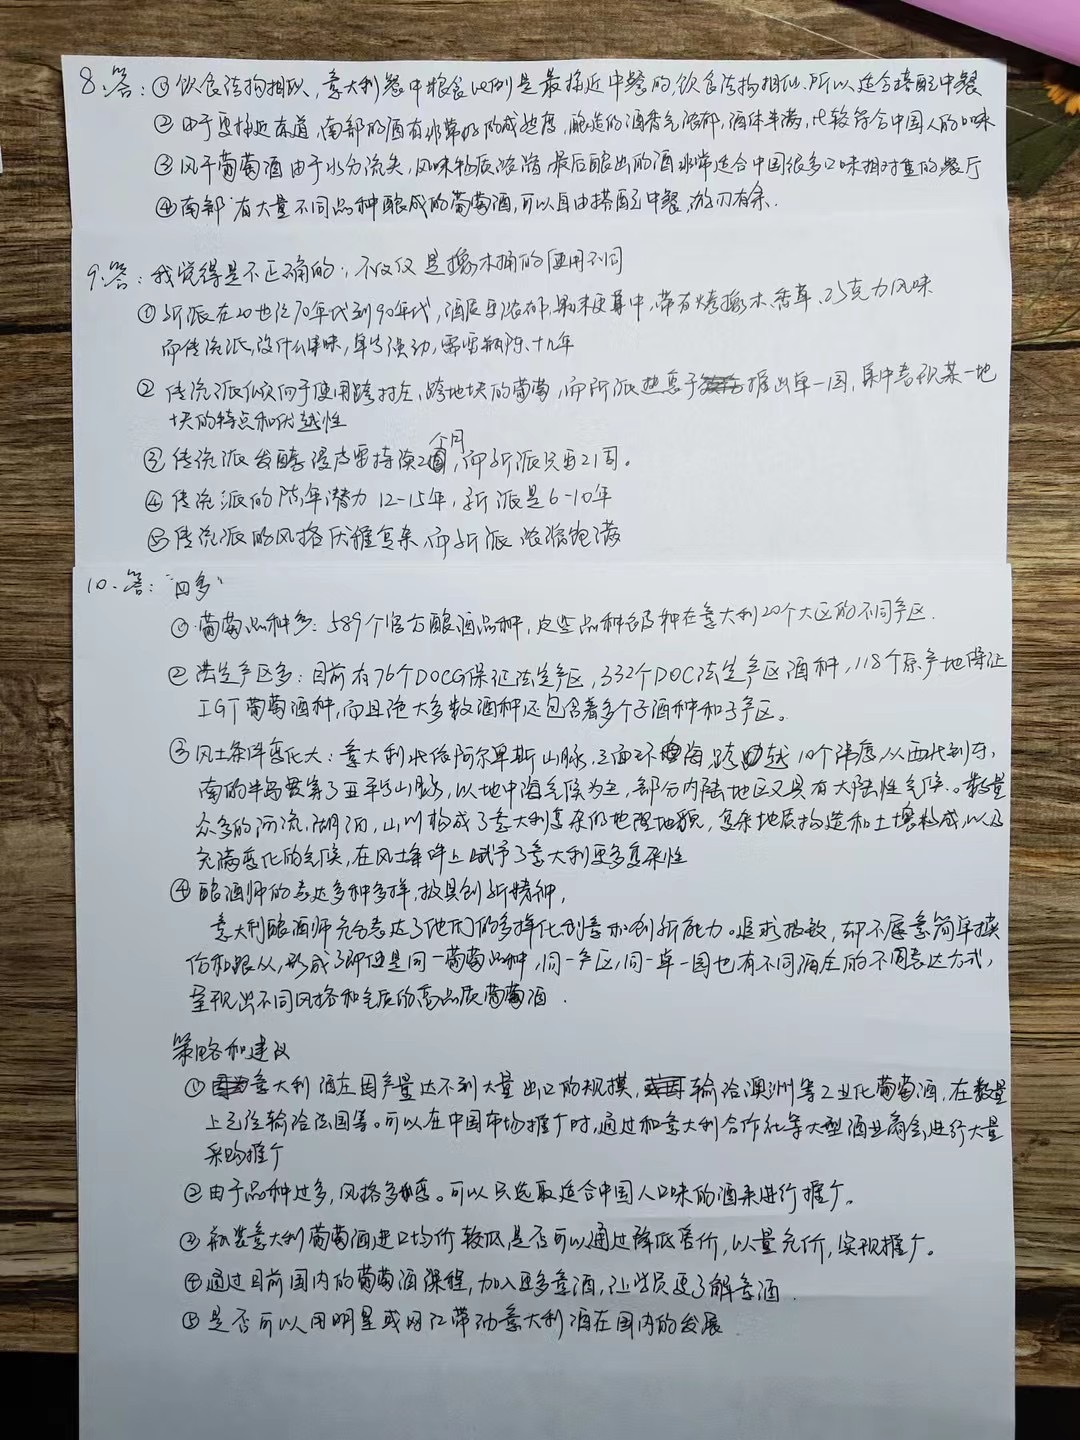 8、答：①饮食结构相似，意大利餐中粮食比例是最接近中餐的，饮食结构相似，所以适合搭配中餐
②由于更接近赤道，南部的酒有非常好的成熟度，酿造的酒香气浓郁，酒体丰满，比较符合中国人的口味
③风干葡萄酒由于水分流失，风味物质浓缩，最后酿出的酒非常适合中国很多口味相对重的餐厅
④南部有大量不同品种酿成的葡萄酒，可以自由搭配中餐，游刃有余.
9、答：我觉得是不正确的，不仅仅是橡木桶的使用不同
①新派在20世纪70年代到90年代，酒更浓郁，果味更集中，带有烤橡木、香草、巧克力风味
而传统派，没什么果味，单宁强劲，需要瓶陈十几年
②传统派倾向于使用跨村庄、跨地块的葡萄，而新派热衷于推出单一园，集中表现某一地
块的特点和优越性
③传统派发酵浸渍需持续2个月，而新派只要21周。
④传统派的陈年潜力12-15年，新派是6-10年
⑤传统派的风格优雅复杂，而新派浓缩饱满
10、答：“四多”
①葡萄品种多：589个官方酿酒品种，这些品种各种在意大利20个大区的不同产区.
②法定产区多：目前有76个DOCG保证法定产区，332个DOC法定产区酒种，118个原产地保证
IGT葡萄酒种，而且绝大多数酒种还包含着多个子酒种和子产区。
③风土条件变化大：意大利北倚阿尔卑斯山脉，三面环海，跨越10个纬度，从西北到东，
南的半岛贯穿了亚平宁山脉，以地中海气候为主，部分内陆地区又具有大陆性气候。数量
众多的河流、湖泊，山川构成了意大利复杂的地理地貌，复杂地质构造和土壤构成，以及
充满变化的气候，在风土条件上赋予了意大利更多复杂性
④酿酒师的表达多种多样，极具创新精神，
意大利酿酒师充分表达了他们的多样化创意和创新能力。追求极致，却不屑意简单模
仿和跟从，形成了即使是同一葡萄品种，同一产区，同一单一园也有不同酒庄的不同表达方式，
呈现出不同风格和气质的高品质葡萄酒.
策略和建议
①意大利酒庄因产量达不到大量出口的规模，输给澳洲等工业化葡萄酒，在数量
上已经输给法国等。可以在中国市场推广时，通过和意大利合作社等大型酒业商会，进行大量
采购推广
②由于品种过多，风格多变。可以只选取适合中国人口味的酒来进行推广。
③瓶装意大利葡萄酒进口均价较低，是否可以通过降低售价，以量充价，实现推广。
④通过目前国内的葡萄酒课程，加入更多意酒，让学员更了解意酒.
⑤是否可以用明星或网红带动意大利酒在国内的发展